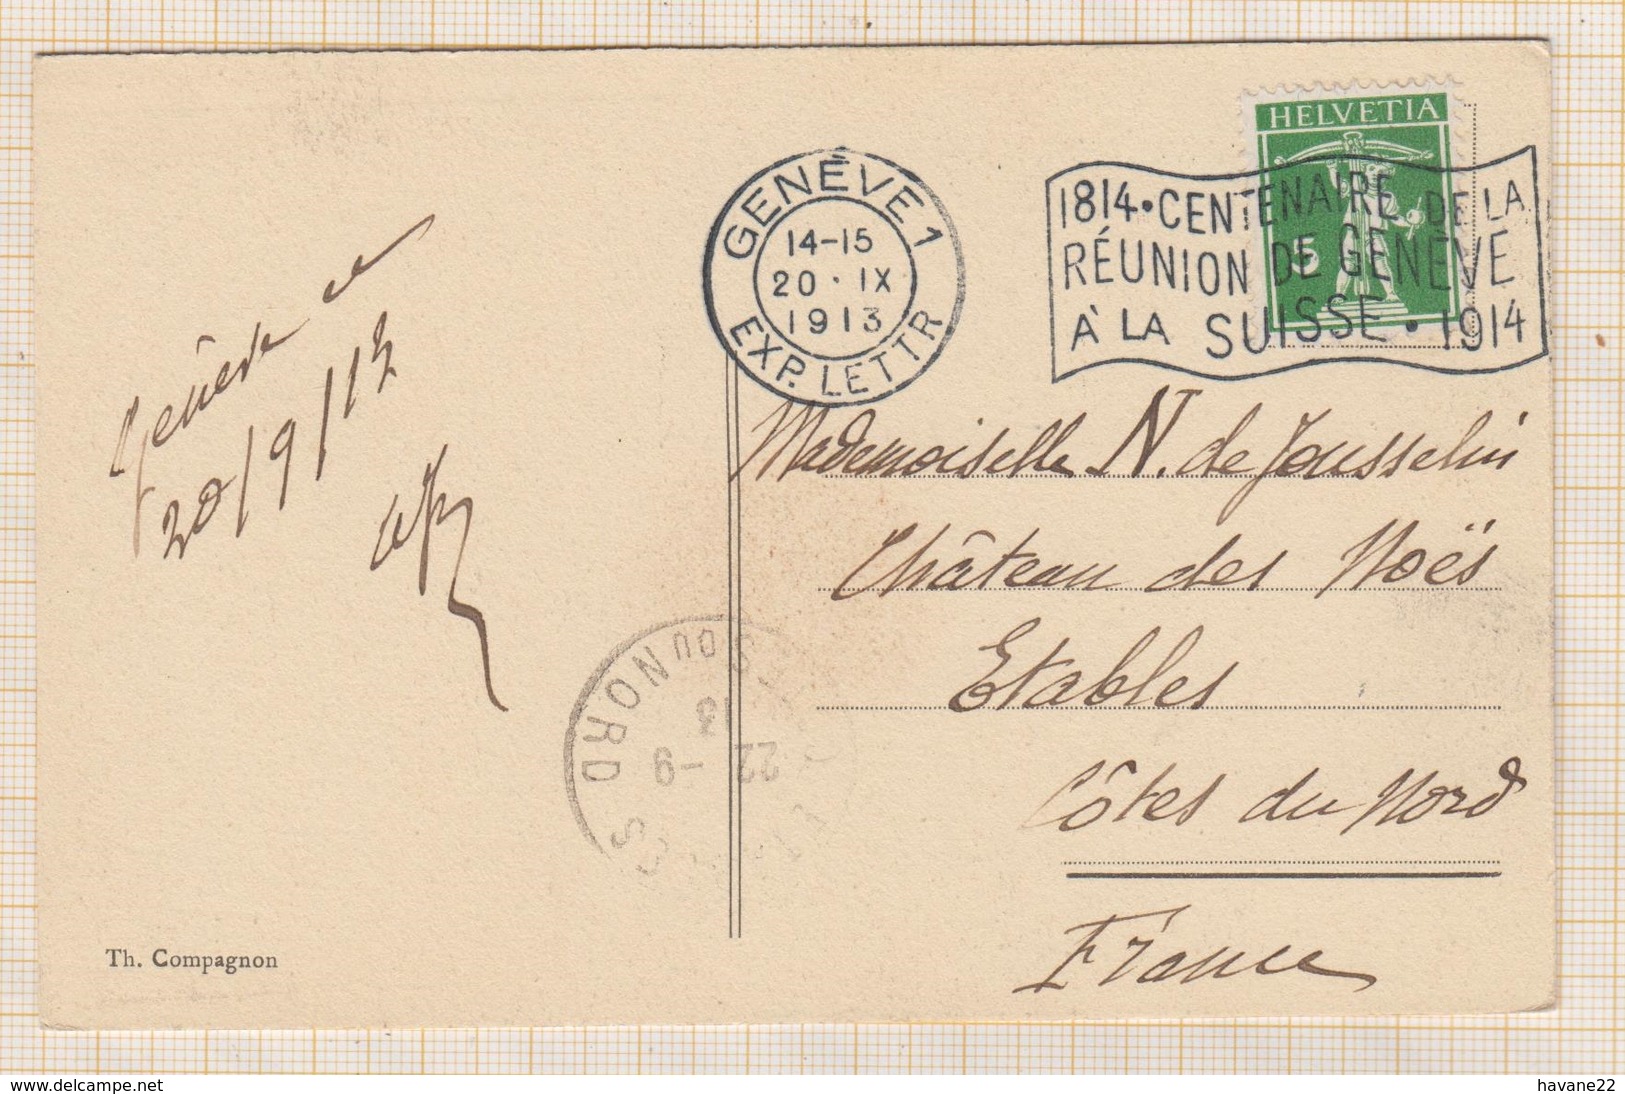 HELVETIA
5
GENÈVE 1
14-15
20 · IX
1913
EXP. LETTR
1814 · CENTENAIRE DE LA
RÉUNION DE GENÈVE
À LA SUISSE · 1914
Genève le
20/9/13
Mademoiselle N. de Jousselin
Château des Noës
Etables
Côtes du Nord
France
DU NORD
22 -9
13
Th. Compagnon
www.delcampe.net
havane22